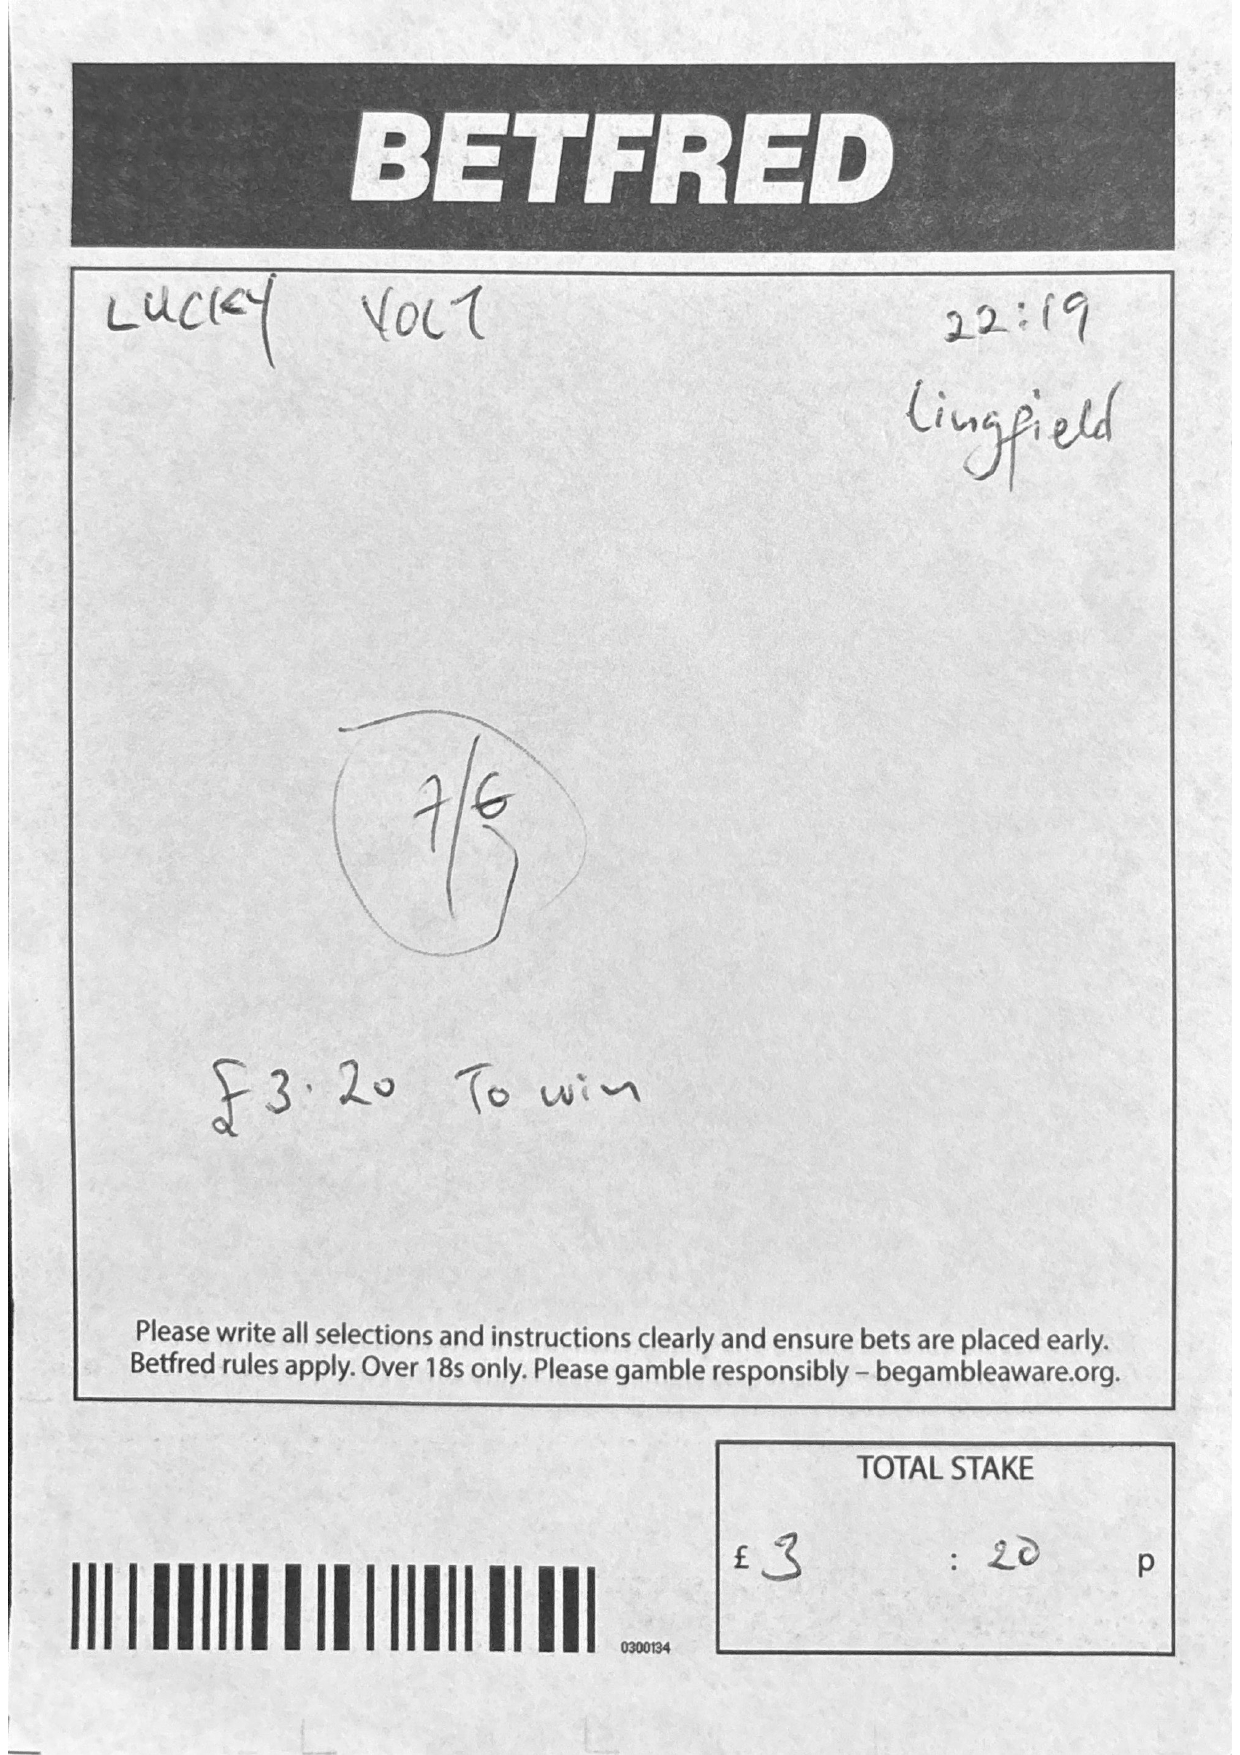 BETFRED
LUCKY VOLT 22:19
Lingfield
7/6
£3.20 To win
Please write all selections and instructions clearly and ensure bets are placed early.
Betfred rules apply. Over 18s only. Please gamble responsibly – begambleaware.org.
TOTAL STAKE
£ 3 : 20 p
0300134